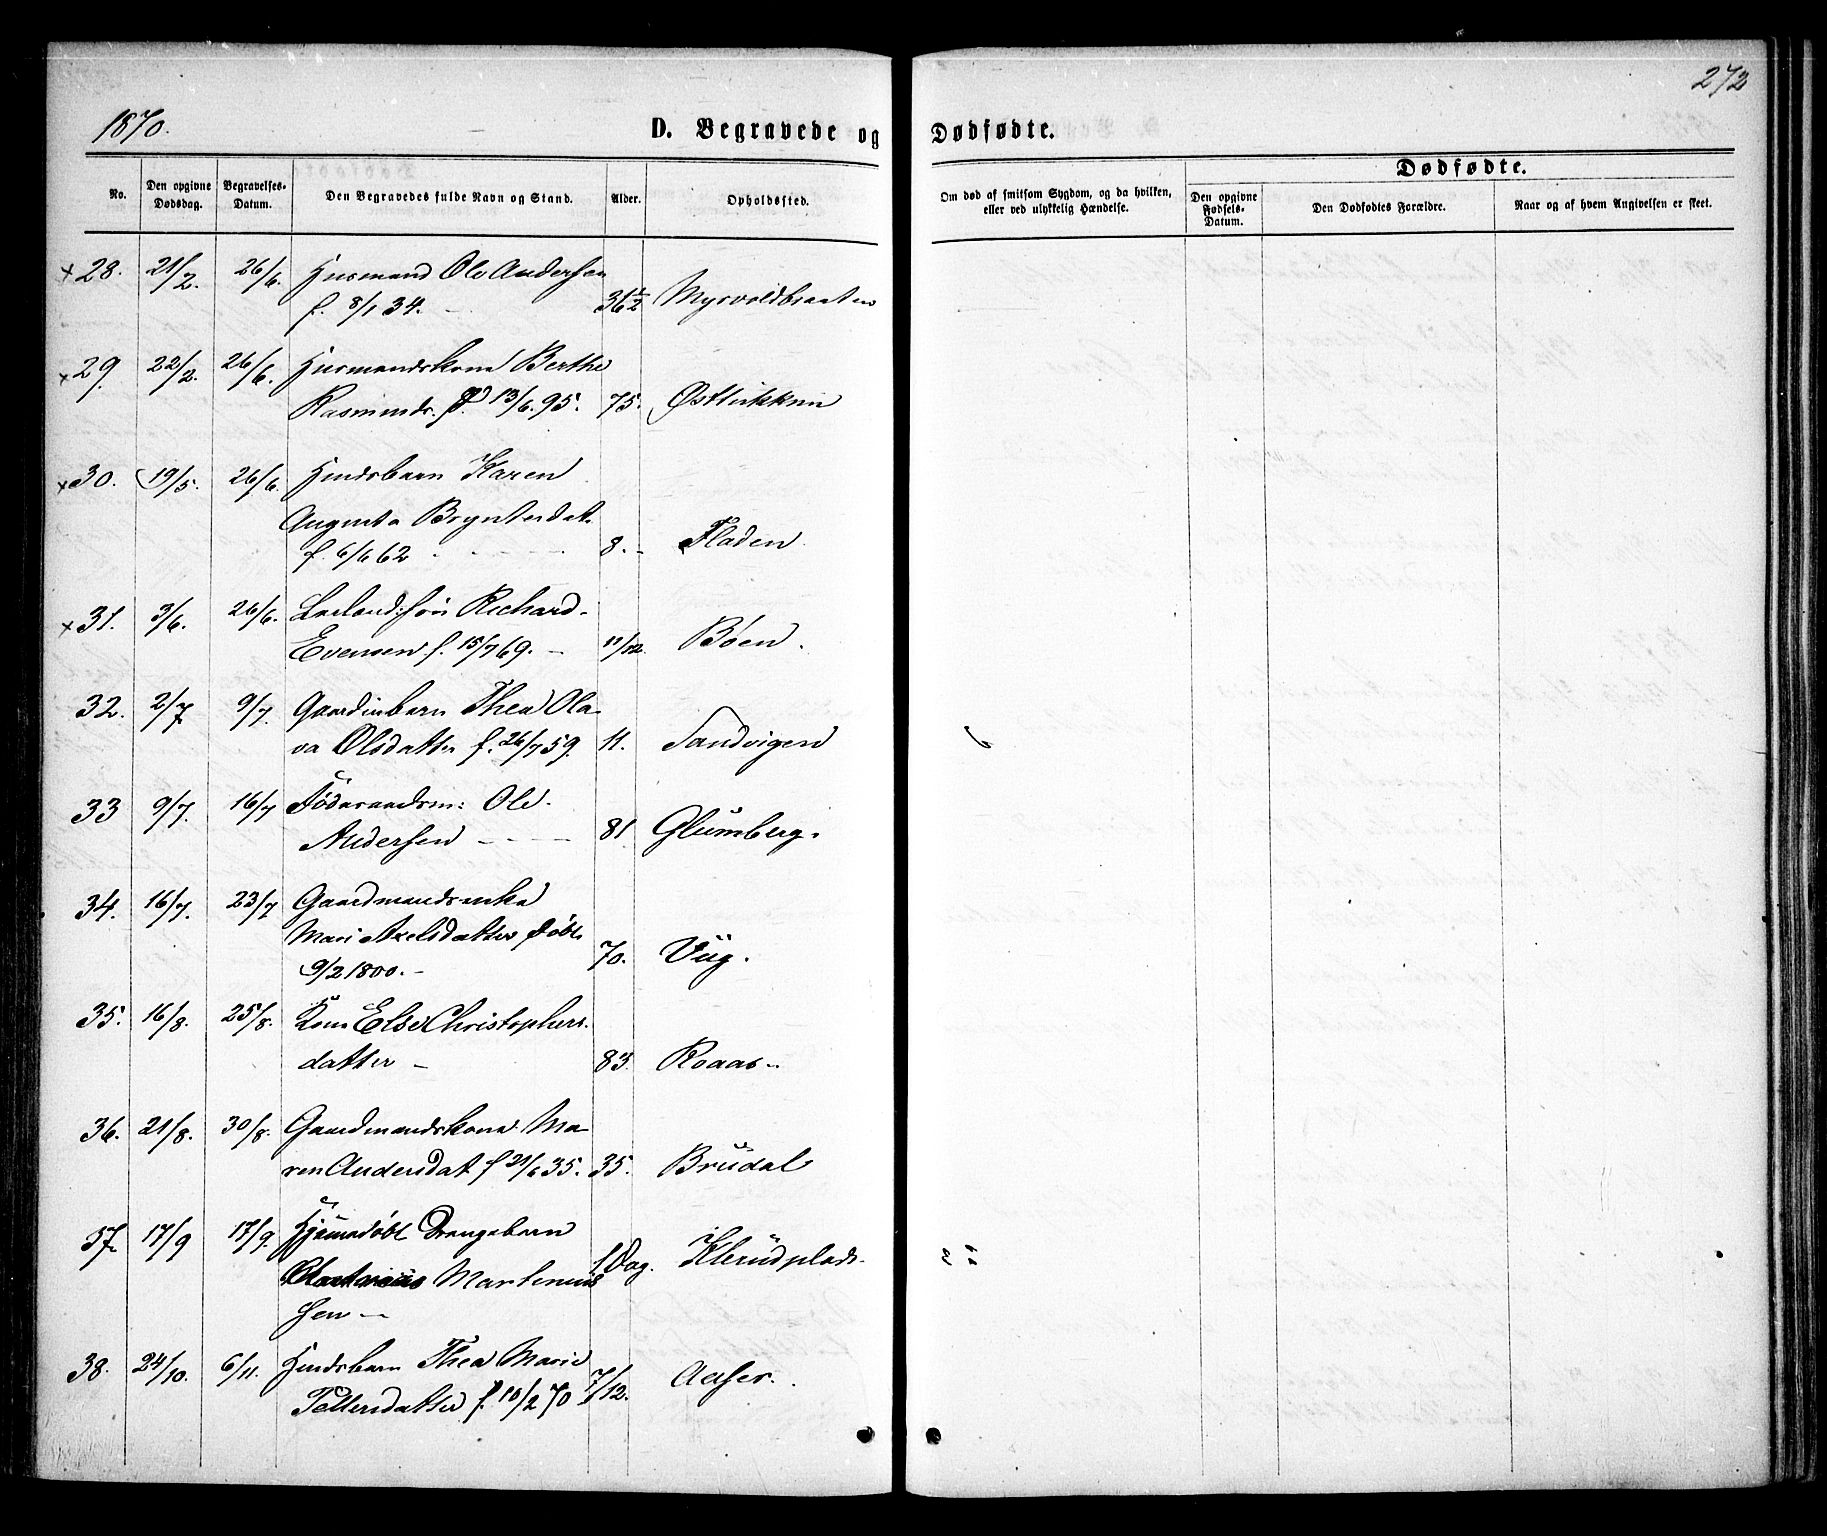 272
1870.
D. Begravede og Dødfødte.
No.
Den opgivne Dødsdag.
Begravelses-Datum.
Den Begravedes fulde Navn og Stand.
Alder.
Opholdssted.
Om død af smitsom Sygdom, og da hvilken, eller ved ulykkelig Hændelse.
Dødfødte.
Den opgivne Fødsels-Datum.
Den Dødfødtes Forældre.
Naar og af hvem Angivelsen er skeet.
x 28. 21/2. 26/6. Husmand Ole Andersen
f. 8/1 34. - 36 1/2 Myrvoldbraaten
x 29. 22/2. 26/6. Husmandskone Berthe
Rasmusds. f. 13/6. 95. 75.
x 30. 19/5. 26/6. Karen
Augusta Bryntesdat.
f. 6/6 62 8. - Fladen
x 31. 3/6. 26/6. Richard
Evensen f. 15/7 69. - 11/12. Böen.
32. 2/7 9/7. Thea Ola-
va Olsdatter f. 26/7 59. 11. Sandvigen
33 9/7. 16/7 Föderaadsm: Ole
Andersen - 81 Glümberg.
34. 16/7. 23/7 Gaardmandsenke
Mari Axelsdatter döbt
9/2 1800. - 70. Viig.
35. 16/8. 25/8. Kone Else Christophers-
datter - 83. Roaas -
36. 21/8. 30/8. Gaardmandskone Ma-
ren Andersdat f 21/6 35. 35. Brüdal
37. 17/9 17/9. Hjemmedöbt Drengebarn
Martinius
sen - 1 Dag.
38. 24/10. 6/11. Thea Marie
f. 10/2 70 7/12. Aaser.